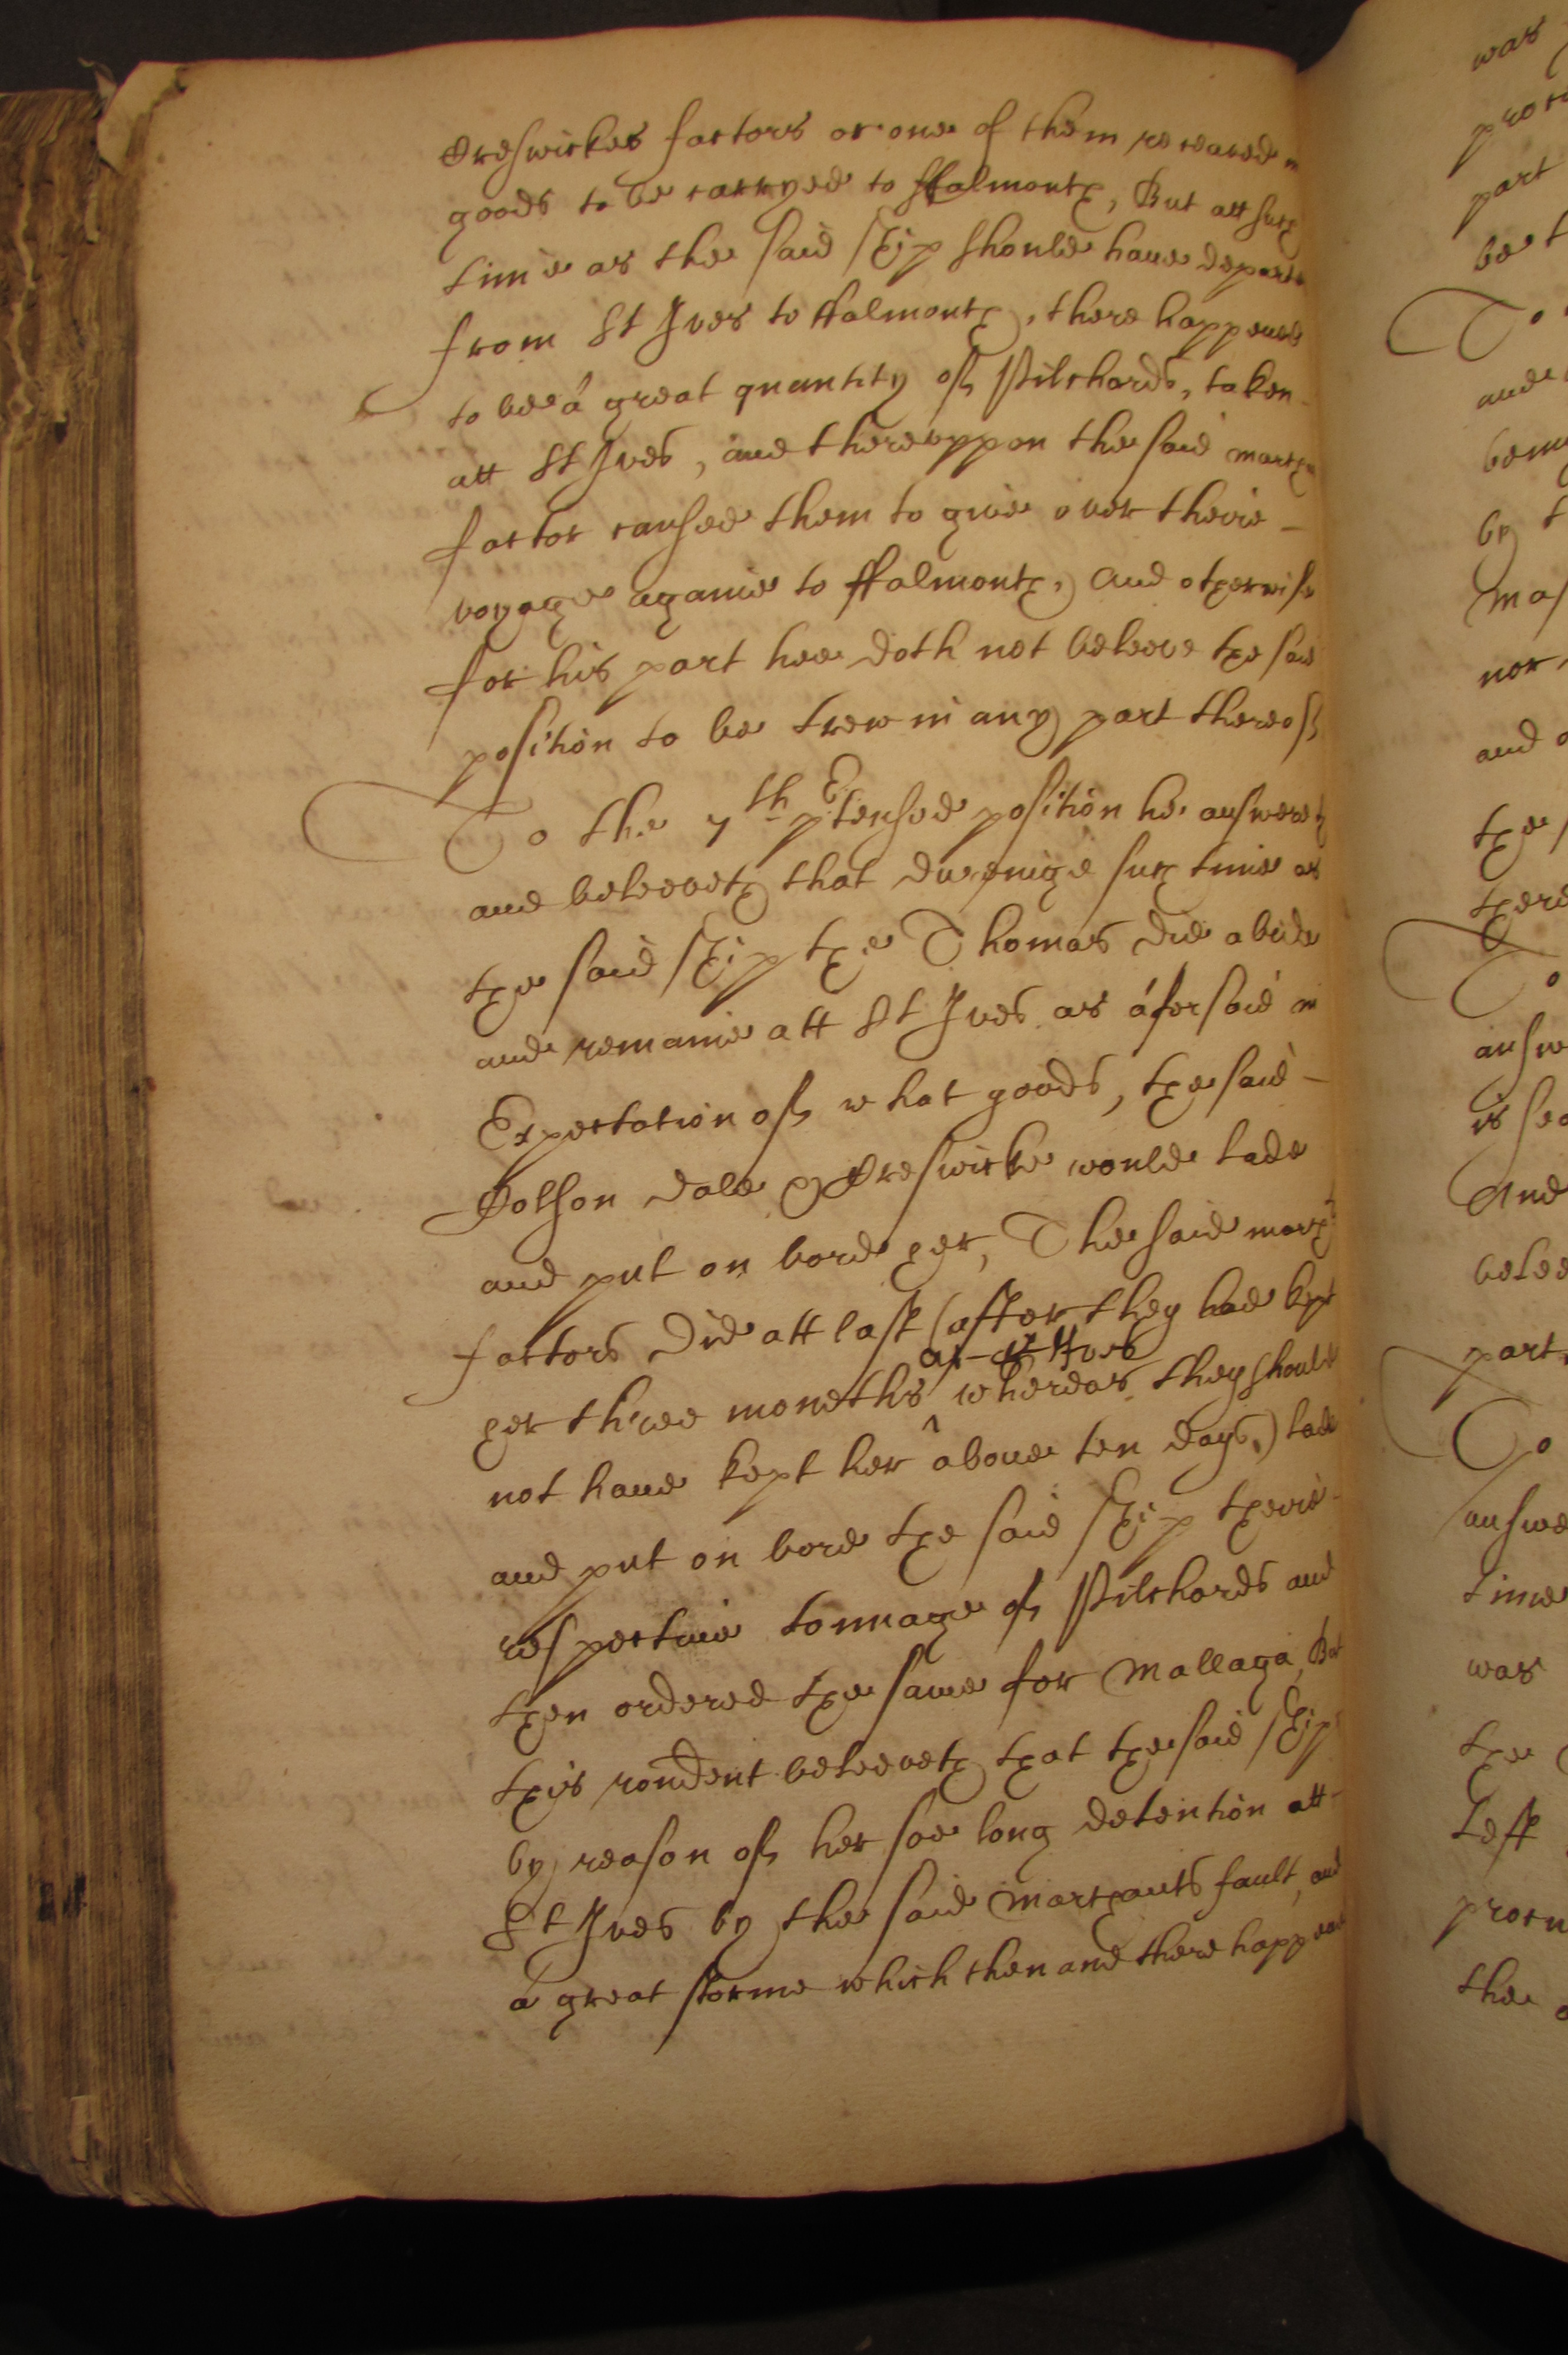 Creswickes factors or one of them receaved
goods to be carryed to ffalmouth, But att such
time as the said ship should have departe
from St Ives to ffalmouth, there happened
to bee a great quantity of Pilchards, taken
att St Ives, and thereuppon the said march
factor caused them to give over theire
voyage againe to ffalmouth, And otherwise
for his part hee doth not beleeve the said
position to be trew in any part thereof
To the 7th ptensed position he answereth
and beleeveth that dureinge such time as
the said ship the Thomas did abide
and remaine att St Ives as afersaid in
Expectation of what goods, the said
dale & Creswicke would lade
and put on bord her, The said march
factors did att last (after they had kept
at St Ives
her three moneths whereas they should
not have kept her above ten days,) lade
and put on bord the said ship theire
respective tonnage of Pilchards and
then ordered the same for Mallaga, But
this rondent beleeveth that the said ship
by reason of her soe long detention att
St Ives by the said Marchants fault, and
a great storme which then and there happened
was
part
To
and
by t
nor
and
the
there
To
answ
is
And
belee
part,
To
answe
time
was
the
left
the